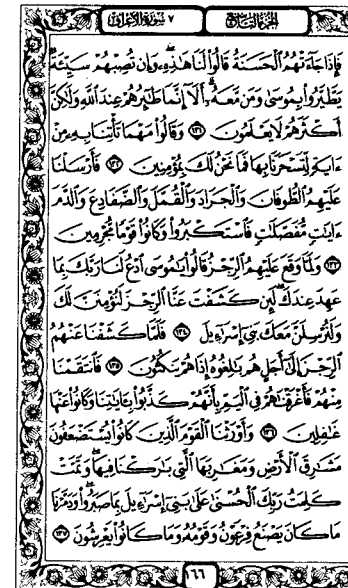 الجزء التاسع ٧ سورة الأعراف
فَإِذَا جَآءَتْهُمُ ٱلْحَسَنَةُ قَالُوا۟ لَنَا هَٰذِهِۦ ۖ وَإِن تُصِبْهُمْ سَيِّئَةٌ
يَطَّيَّرُوا۟ بِمُوسَىٰ وَمَن مَّعَهُۥٓ ۗ أَلَآ إِنَّمَا طَٰٓئِرُهُمْ عِندَ ٱللَّهِ وَلَٰكِنَّ
أَكْثَرَهُمْ لَا يَعْلَمُونَ ١٣١ وَقَالُوا۟ مَهْمَا تَأْتِنَا بِهِۦ مِنْ
ءَايَةٍ لِّتَسْحَرَنَا بِهَا فَمَا نَحْنُ لَكَ بِمُؤْمِنِينَ ١٣٢ فَأَرْسَلْنَا
عَلَيْهِمُ ٱلطُّوفَانَ وَٱلْجَرَادَ وَٱلْقُمَّلَ وَٱلضَّفَادِعَ وَٱلدَّمَ
ءَايَٰتٍ مُّفَصَّلَٰتٍ فَٱسْتَكْبَرُوا۟ وَكَانُوا۟ قَوْمًا مُّجْرِمِينَ
١٣٣ وَلَمَّا وَقَعَ عَلَيْهِمُ ٱلرِّجْزُ قَالُوا۟ يَٰمُوسَى ٱدْعُ لَنَا رَبَّكَ بِمَا
عَهِدَ عِندَكَ ۖ لَئِن كَشَفْتَ عَنَّا ٱلرِّجْزَ لَنُؤْمِنَنَّ لَكَ
وَلَنُرْسِلَنَّ مَعَكَ بَنِىٓ إِسْرَٰٓءِيلَ ١٣٤ فَلَمَّا كَشَفْنَا عَنْهُمُ
ٱلرِّجْزَ إِلَىٰٓ أَجَلٍ هُم بَٰلِغُوهُ إِذَا هُمْ يَنكُثُونَ ١٣٥ فَٱنتَقَمْنَا
مِنْهُمْ فَأَغْرَقْنَٰهُمْ فِى ٱلْيَمِّ بِأَنَّهُمْ كَذَّبُوا۟ بِـَٔايَٰتِنَا وَكَانُوا۟ عَنْهَا
غَٰفِلِينَ ١٣٦ وَأَوْرَثْنَا ٱلْقَوْمَ ٱلَّذِينَ كَانُوا۟ يُسْتَضْعَفُونَ
مَشَٰرِقَ ٱلْأَرْضِ وَمَغَٰرِبَهَا ٱلَّتِى بَٰرَكْنَا فِيهَا ۖ وَتَمَّتْ
كَلِمَتُ رَبِّكَ ٱلْحُسْنَىٰ عَلَىٰ بَنِىٓ إِسْرَٰٓءِيلَ بِمَا صَبَرُوا۟ ۖ وَدَمَّرْنَا
مَا كَانَ يَصْنَعُ فِرْعَوْنُ وَقَوْمُهُۥ وَمَا كَانُوا۟ يَعْرِشُونَ ١٣٧
١٦٦